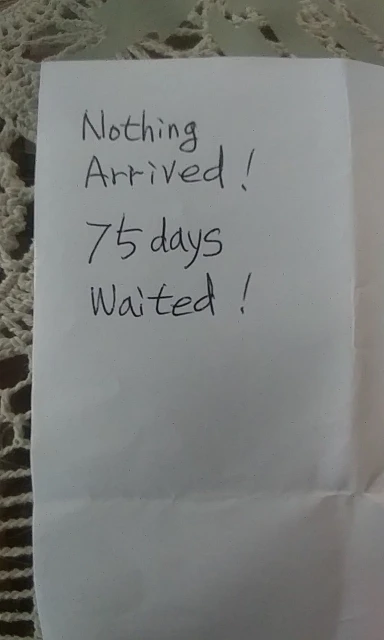 Nothing
Arrived!
75 days
Waited!